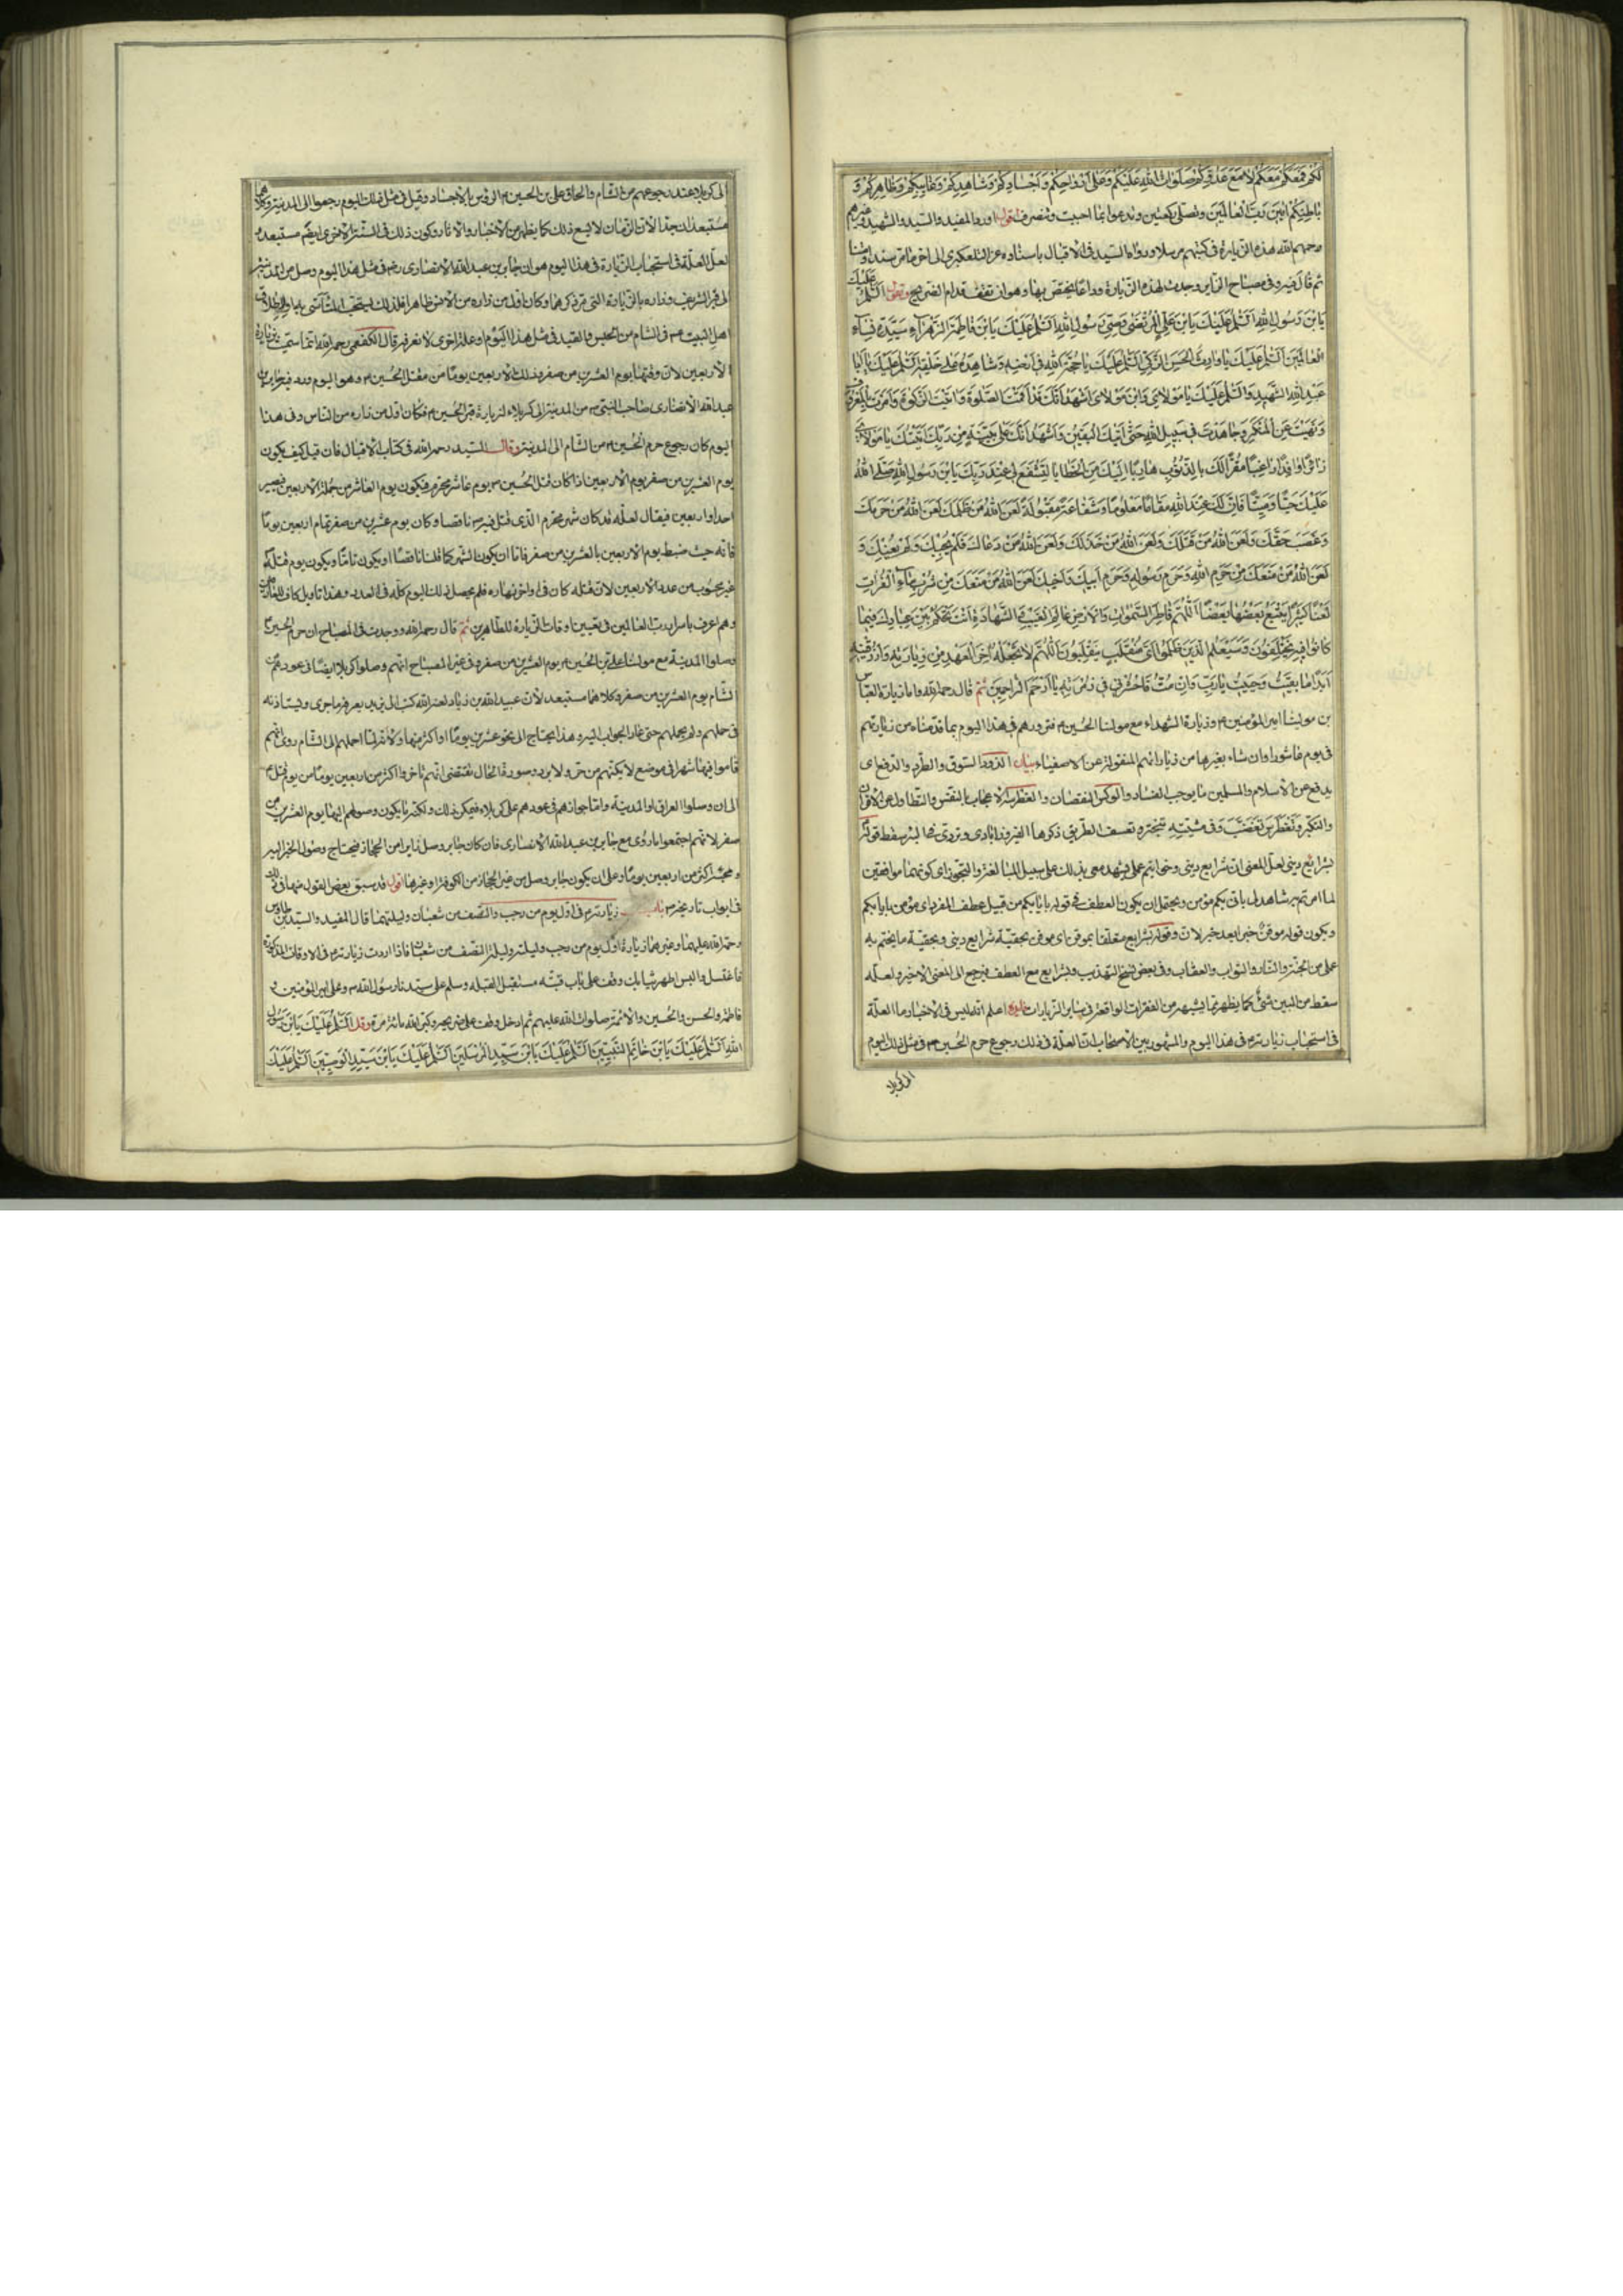 لكم فمعكم معكم لا مع عدوكم صلوات الله عليكم وعلى ارواحكم واجسادكم وشاهدكم وغايبكم وظاهركم و
باطنكم امين رب العالمين وتصلى ركعتين وتدعو بما احببت وتنصرف اقول اورد المفيد والسيد والشهيد وغيرهم
رحمهم الله هذه الزيارة فى كتبهم مرسلا ورواه السيد فى الاقبال باسناده عن التلعكبرى الى اخر ما مر سندا ومتنا
ثم قال فيه وفى مصباح الزاير وجدت لهذه الزيارة وداعا يختص بها وهو ان تقف قدام الضريح وتقول السلم عليك
يابن رسول الله السلم عليك يابن على المرتضى وصى رسول الله السلم عليك يابن فاطمة الزهراء سيدة نساء
العالمين السلم عليك يا وارث الحسن الزكى السلم عليك يا حجة الله فى ارضه وشاهده على خلقه السلم عليك يا ابا
عبد الله الشهيد السلم عليك يا مولاى وابن مولاى اشهد انك قد اقمت الصلوة واتيت الزكوة وامرت بالمعروف
ونهيت عن المنكر وجاهدت فى سبيل الله حتى اتيك اليقين واشهد انك على بينة من ربك اتيتك يا مولاى
زائرا وافدا راغبا مقرا لك بالذنوب هاربا اليك من الخطايا لتشفع لى عند ربك يابن رسول الله صلى الله
عليك حيا وميتا فان لك عند الله مقاما معلوما وشفاعة مقبولة لعن الله من ظلمك لعن الله من حرمك
وغصب حقك ولعن الله من قتلك ولعن الله من خذلك ولعن الله من دعالك فلم يجبك ولم يعنك و
لعن الله من منعك من حرم الله وحرم رسوله وحرم ابيك واخيك لعن الله من منعك من شرب ماء الفرات
لعنا كثيرا يتبع بعضها بعضا اللهم فاطر السموات والارض عالم الغيب والشهادة انت تحكم بين عبادك فيما
كانوا فيه يختلفون وسيعلم الذين ظلموا اى منقلب ينقلبون اللهم لا تجعله اخر العهد من زيارته وارزقنيه
ابدا ما بقيت وحييت يا رب وان مت فاحشرنى فى زمرته يا ارحم الراحمين ثم قال رحمه الله واما زيارة العباس
بن مولينا امير المؤمنين ع وزيارة الشهداء مع مولينا الحسين ع فتزورهم فى هذا اليوم بما قدمناه من زياراتهم
فى يوم عاشورا وان شاء بغيرها من زياراتهم المنقولة عن الاصفياء بيان الذود السوق والطرد والدفع اى
يدفع عن الاسلام والمسلمين ما يوجب الفساد والوكس النقصان والغطرسة الاعجاب بالنفس والتطاول على الاقران
والتكبر وتغطرس تغضب وفى مشيته تبختر وتعسف الطريق ذكرها الفيروزابادى وتردى فى البئر سقط قوله
بشرايع دينى لعل المعنى ان شرايع دينى وخواتيم عملى يشهد معى بذلك على سبيل المبالغة والتجوز اى كونهما موافقين
لما امرتم به شاهد لى بانى بكم مؤمن ويحتمل ان يكون العطف فى قوله باياتكم من قبيل عطف المفرد اى مؤمن باياتكم
ويكون قوله موقن خبرا بعد خبر لان وقوله بشرايع متعلقا بموقن اى موقن بحقية شرايع دينى وبحقية ما يختم به
عملى من الجنة والنار والثواب والعقاب وفى بعض نسخ التهذيب وبشرايع مع العطف فيرجع الى المعنى الاخير ولعله
سقط من البين شئ كما يظهر مما يشبهه من الفقرات الواقعة فى ساير الزيارات اعلم انه ليس فى الاخبار ما العلة
فى استحباب زيارته ع فى هذا اليوم والمشهور بين الاصحاب ان العلة فى ذلك رجوع حرم الحسين ع فى مثل ذلك اليوم
الى كربلا
الى كربلاء عند رجوعهم من الشام والحاق على بن الحسين ع الرؤس بالاجساد وقيل فى مثل ذلك اليوم رجعوا الى المدينة وكلاهما
مستبعدان جدا لان الزمان لا يسع ذلك كما يظهر من الاخبار والاثار وكون ذلك فى السنة الاخرى ايضا مستبعد و
لعل العلة فى استحباب الزيارة فى هذا اليوم هو ان جابر بن عبد الله الانصارى رض فى مثل هذا اليوم وصل من المدينة
الى قبره الشريف وزاره بالزيارة التى مر ذكرها وكان اول من زاره من الانس ظاهرا فلذلك يستحب التاسى به او اطلاق
اهل البيت ع فى الشام من الحبس والقيد فى مثل هذا اليوم او علة اخرى لا نعرفها قال الكفعمى رحمه الله انما سميت بزيارة
الاربعين لان وقتها يوم العشرين من صفر وذلك لاربعين يوما من مقتل الحسين ع وهو اليوم ورد فيه جابر بن
عبد الله الانصارى صاحب النبى ص من المدينة الى كربلاء لزيارة قبر الحسين ع فكان اول من زاره من الناس وفى هذا
اليوم كان رجوع حرم الحسين ع من الشام الى المدينة وقال السيد رحمه الله فى كتاب الاقبال فان قيل كيف يكون
يوم العشرين من صفر يوم الاربعين اذا كان قتل الحسين ع يوم عاشر محرم فيكون يوم العاشر من جملة الاربعين فيصير
احدا واربعين فيقال لعله قد كان شهر محرم الذى قتل فيه ع ناقصا وكان يوم عشرين من صفر تمام اربعين يوما
فانه حيث ضبط يوم الاربعين بالعشرين من صفر فاما ان يكون الشهر كما قلنا ناقصا او يكون تاما ويكون يوم قتله ع
غير محسوب من عدد الاربعين لان قتله كان فى اواخر نهاره فلم يحصل ذلك اليوم كله فى العدد وهذا تاويل كاف للعارفين
وهم اعرف باسرار رب العالمين فى تعيين اوقات الزيارة للطاهرين ثم قال رحمه الله ووجدت فى المصباح ان حرم الحسين ع
وصلوا المدينة مع مولينا على بن الحسين ع يوم العشرين من صفر وفى غير المصباح انهم وصلوا كربلا ايضا فى عودهم من
الشام يوم العشرين من صفر وكلاهما مستبعد لان عبيد الله بن زياد لعنه الله كتب الى يزيد يعرفه ما جرى ويستاذنه
فى حملهم ولم يحملهم حتى عاد الجواب اليه وهذا يحتاج الى نحو عشرين يوما او اكثر منها ولانه لما حملهم الى الشام روى انهم
قاموا فيها شهرا فى موضع لا يكنهم من حر ولا برد وصورة الحال تقتضى انهم تاخروا اكثر من اربعين يوما من يوم قتل ع
الى ان وصلوا العراق او المدينة واما جوازهم فى عودهم على كربلاء فيمكن ذلك ولكنه ما يكون وصولهم اليها يوم العشرين من
صفر لانهم اجتمعوا ما روى مع جابر بن عبد الله الانصارى فان كان جابر وصل زايرا من الحجاز فيحتاج وصول الخبر اليه
ومجيئه اكثر من اربعين يوما وعلى ان يكون جابر وصل من غير الحجاز من الكوفة او غيرها اقول قد سبق بعض القول منا فى ذلك
فى ابواب تاريخه ع باب زيارته ع فى اول يوم من رجب والنصف من شعبان وليلتهما قال المفيد والسيد بن طاوس
رحمة الله عليهما وغيرهما زيارة اول يوم من رجب وليلته وليلة النصف من شعبان فاذا اردت زيارته ع فى الاوقات المذكورة
فاغتسل والبس اطهر ثيابك وقف على باب قبته مستقبل القبله وسلم على سيدنا رسول الله ص وعلى امير المؤمنين و
فاطمة والحسن والحسين والائمة صلوات الله عليهم ثم ادخل وقف على ضريحه وكبر الله مائة مرة وقل السلم عليك يابن رسول
الله السلم عليك يابن خاتم النبيين السلم عليك يابن سيد المرسلين السلم عليك يابن سيد الوصيين السلم عليك